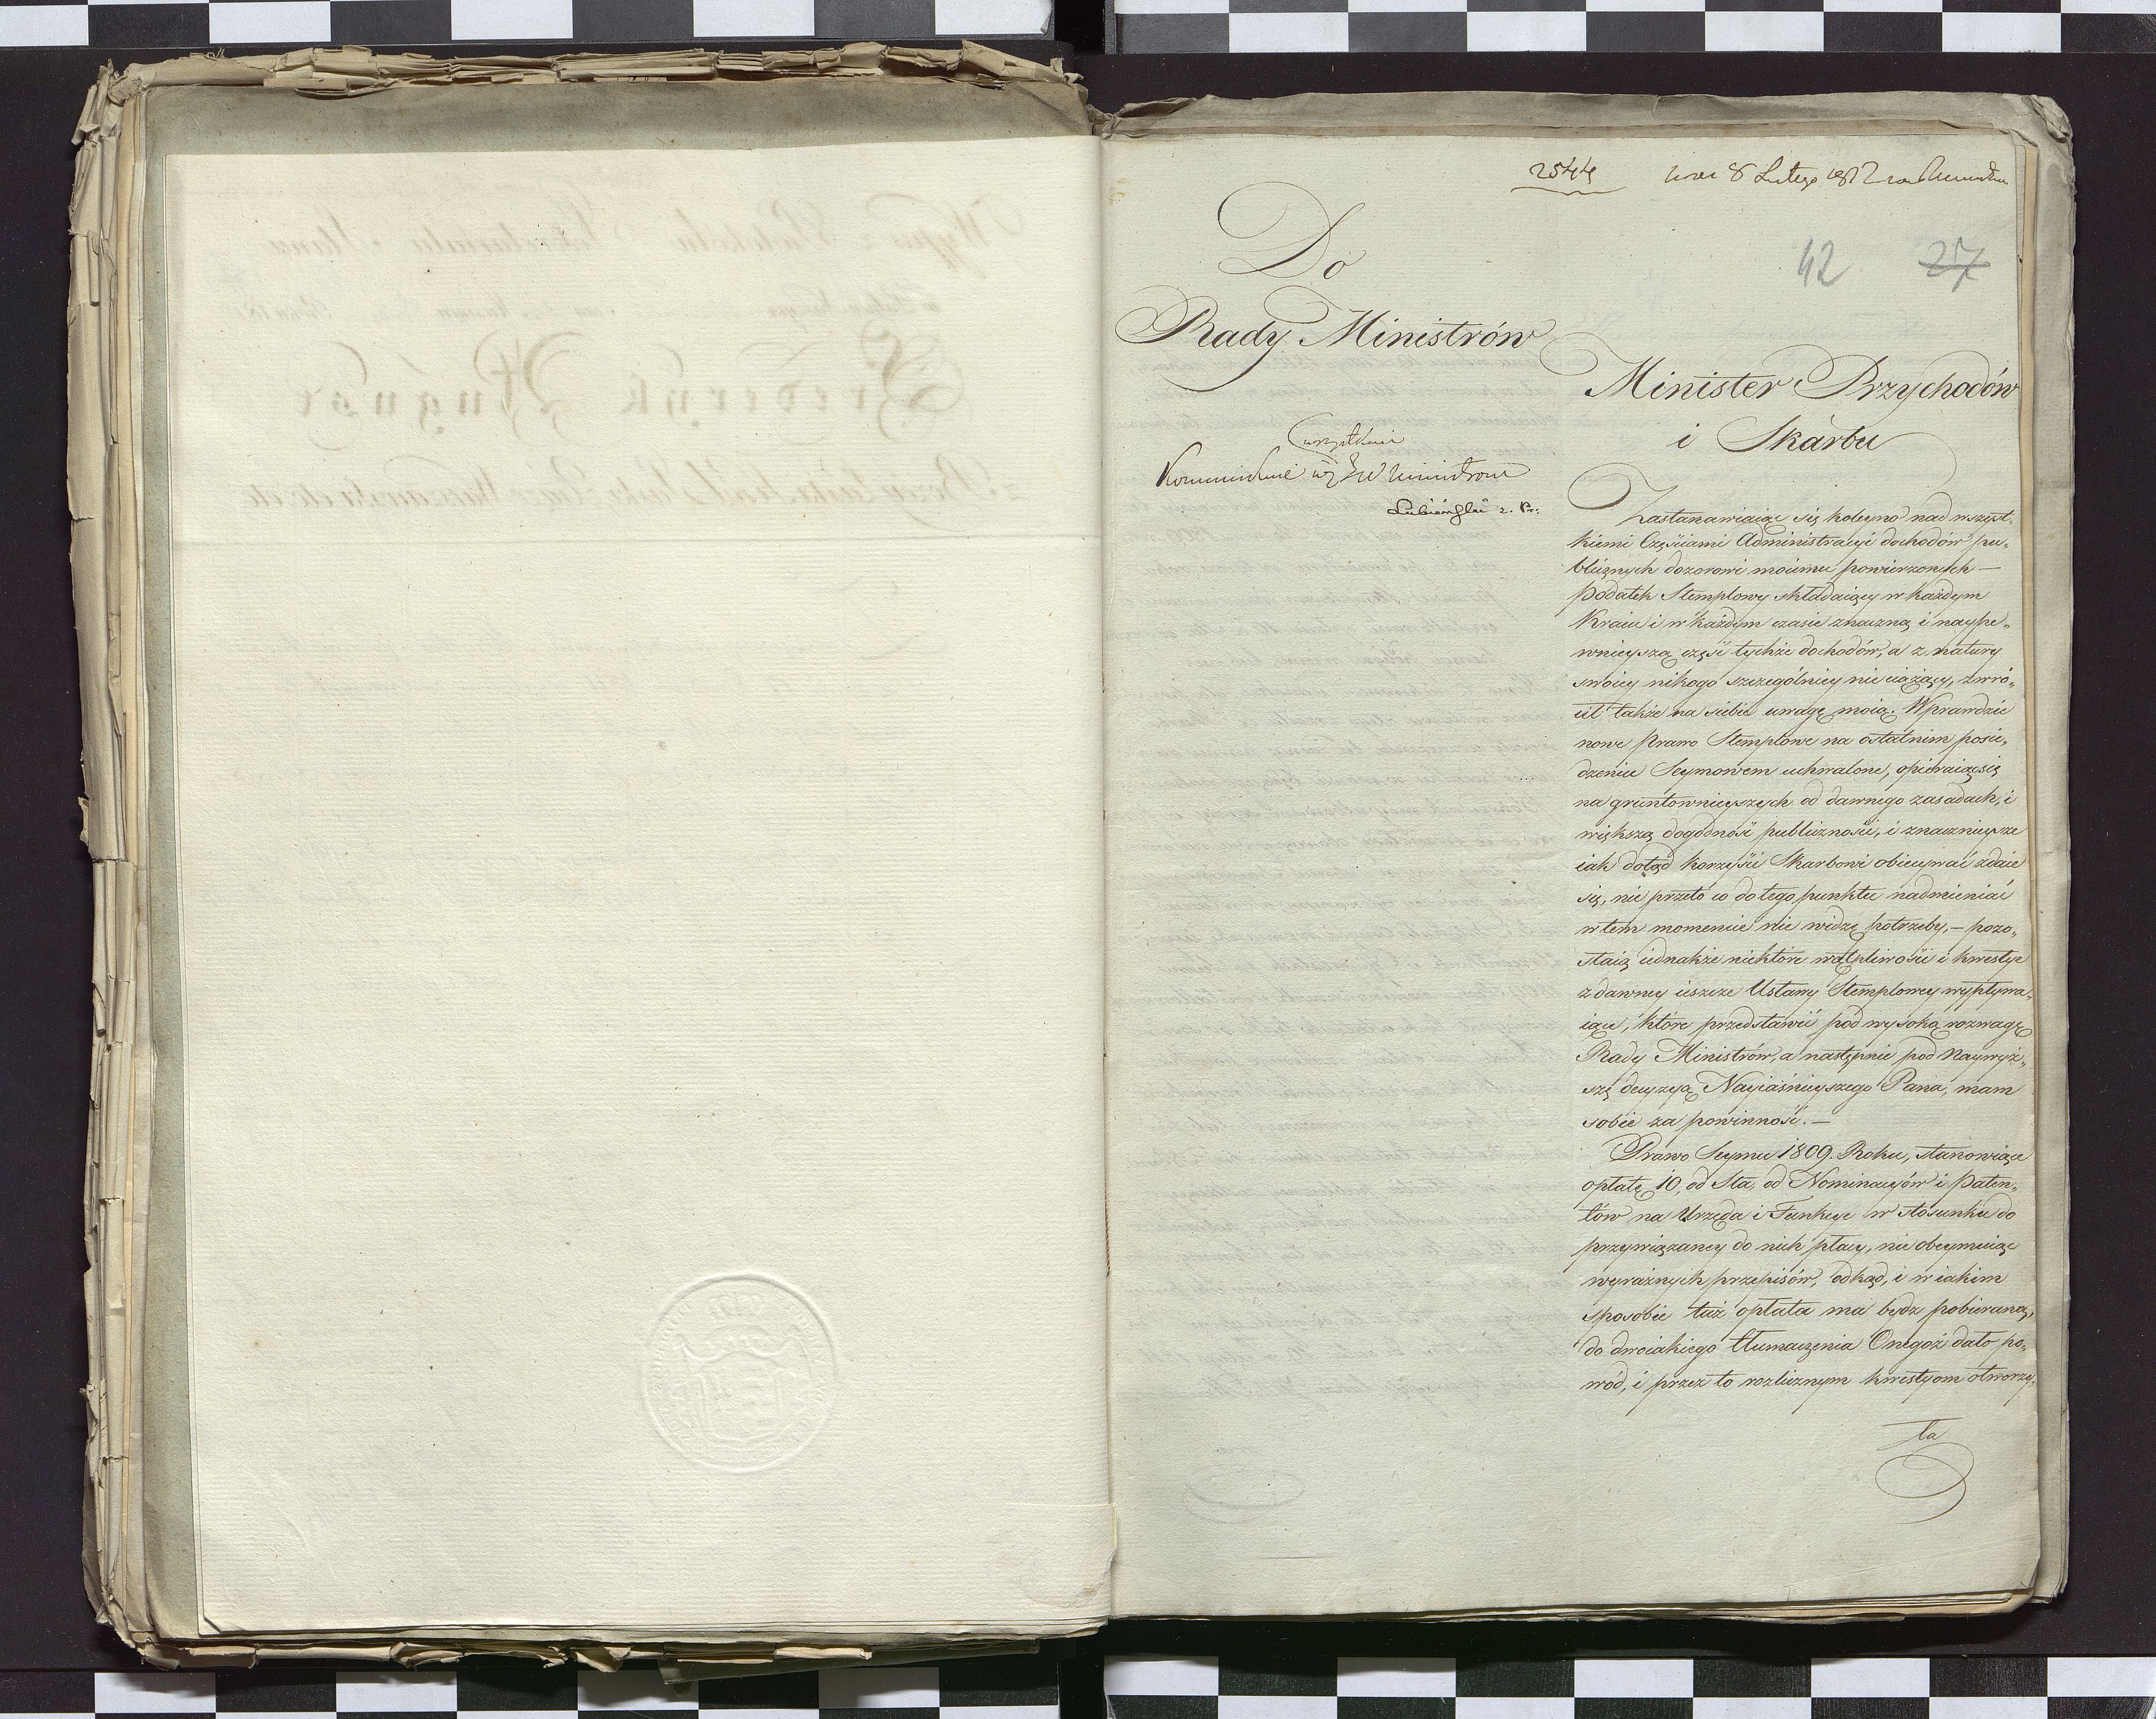 2544
8 Lutego 1812
42 27
Do
Rady Ministrów
Minister Przychodów
i Skarbu
wszystkim
Kommunikuie się JW Ministrom
Lubieński z. Pr:
Zastanawiaiąc się koleyno nad wszyst-
kiemi Częściami Administracyi dochodów pu-
blicznych dozorowi moiemu powierzonych —
podatek Stemplowy składaiący w każdym
Kraiu i w każdym czasie znaczną i naype-
wnieyszą część tychże dochodów, a z natury
swoiey nikogo szczególniey nie ciążący, zwró-
cił także na siebie uwagę moią. Wprawdzie
nowe prawo Stemplowe na ostatnim posie-
dzeniu Seymowem uchwalone, opieraiąc się
na gruntownieyszych od dawnego zasadach, i
większą dogodność publiczności, i znacznieysze
iak dotąd korzyści Skarbowi obiecywać zdaie
się, nic przeto co do tego punktu nadmieniać
w tem momencie nie widzę potrzeby, — pozo-
staią iednakże niektóre wątpliwości i kwestye
z dawney ieszcze Ustawy Stemplowey wypływa-
iące, które przedstawić pod wysoką rozwagę
Rady Ministrów, a następnie pod Naywyż-
szą decyzyą Nayiaśnieyszego Pana, mam
sobie za powinność. —
Prawo Seymu 1809. Roku, stanowiące
opłatę 10, od Sta, od Nominacyów i paten-
tów na Urzęda i Funkcye w stosunku do
przywiązaney do nich płacy, nie obeymuiąc
wyraźnych przepisów, odkąd, i w iakim
sposobie taż opłata ma bydz pobieraną,
do dwoiakiego tłumaczenia Onegoż dało po-
wód, i przez to rozlicznym kwestyom otworzy-
ła